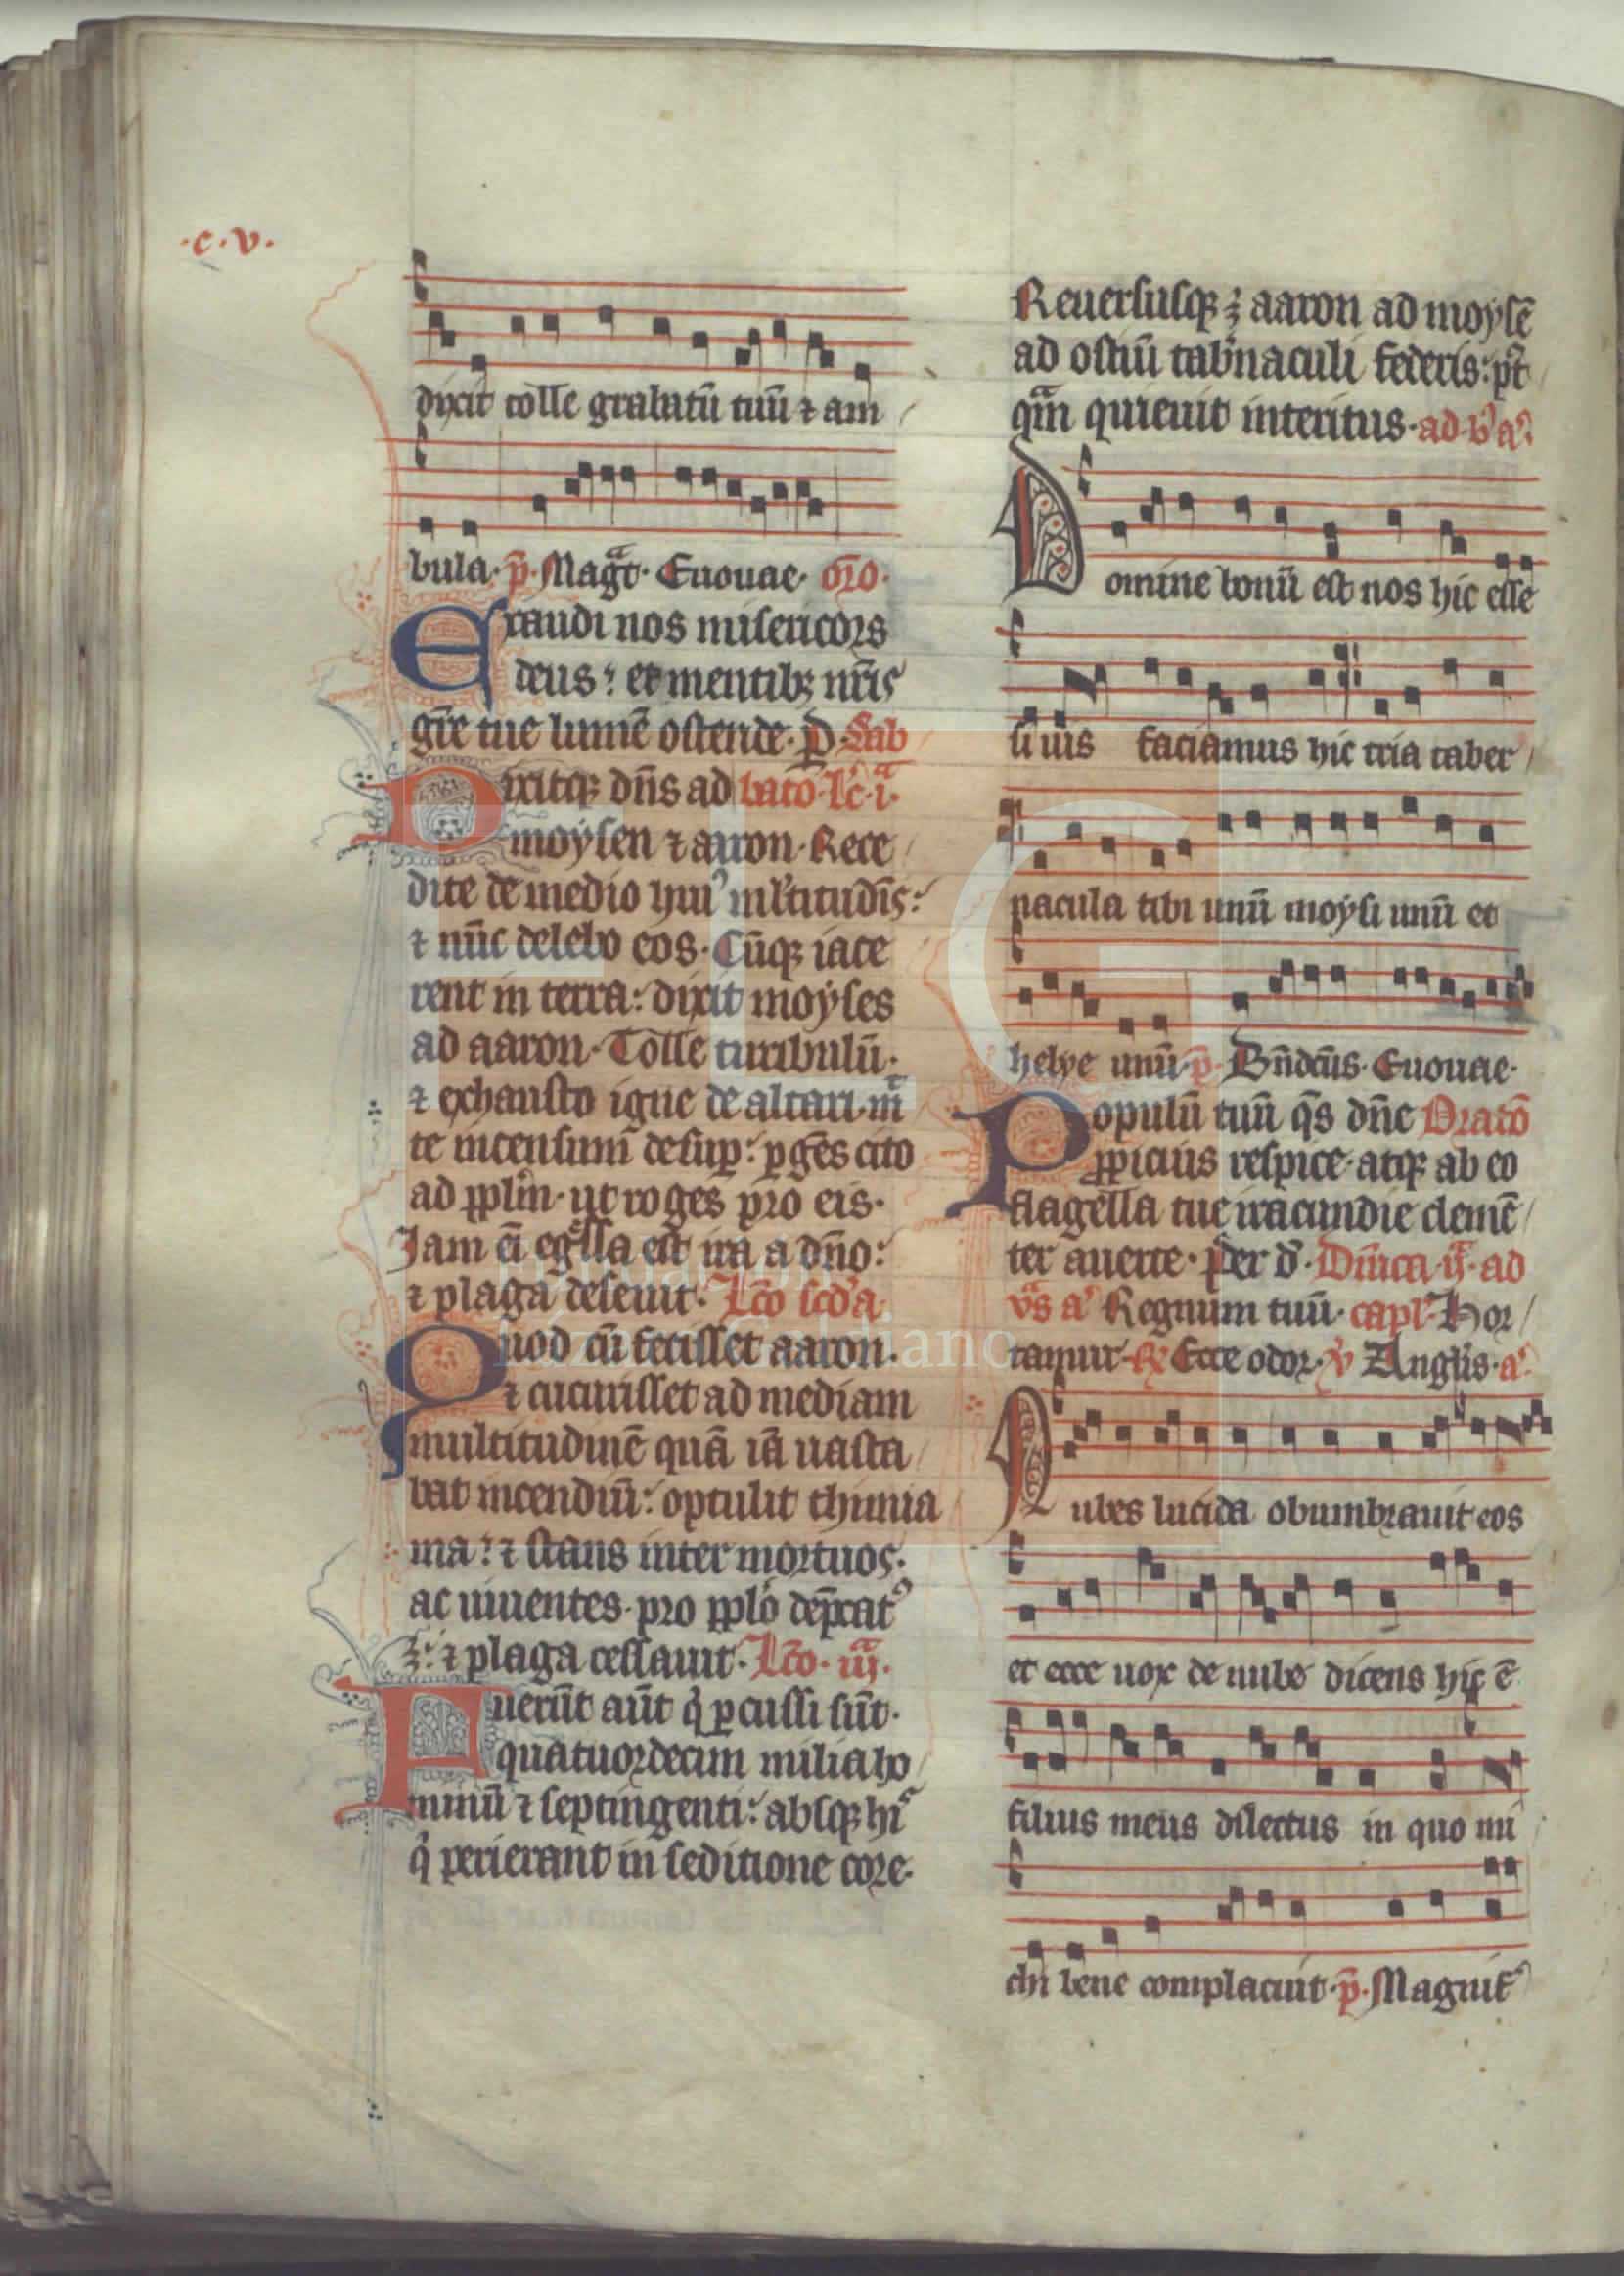 ·c·v·
dixit tolle grabatū tuū ⁊ am
bula· p̄· Magᵃt· Euouae· oro·
Exaudi nos misericors
deus: et mentibꝫ nr̄is
gr̄e tue lumē ostende· P· Sab
Dixitqꝫ dn̄s ad bato· lc̄· i·
moysen ⁊ aaron· Rece
dite de medio huiꝰ ml̓titudīs:
⁊ nūc delebo eos· Cūqꝫ iace
rent in terra: dixit moyses
ad aaron· Tolle turibulū·
⁊ exhausto igne de altari· mᵃ
te incensum desuꝑ: ꝑges cito
ad pplm̄· ut roges pro eis·
Jam ei egssa est ira a dn̄o:
⁊ plaga deseuit· Lc̄o scd̓a
Quod cū fecisset aaron·
⁊ cucurrisset ad mediam
multitudinē quā iā uasta
bat incendiū: optulit thimia
ma: ⁊ stans inter mortuos·
ac uiuentes· pro pplo dep̄cat
ꝫ: ⁊ plaga cessauit· Lc̄o· iij·
Fuerūt aūt q̓ ꝑcussi sūt·
quatuordecim milia ho
minū ⁊ septingenti: absqꝫ hiˢ
q̓ perierant in seditione core·
Reuersusqꝫ ꝫ aaron ad moysē
ad ostiū tab̓naculi federis: pꝰt
qᵃm quieuit interitus· ad b̓ a᷑
Domine bonū est nos hic esse
si uis faciamus hic tria taber
nacula tibi unū moysi unū et
helye unū p̄· Bn̄dcūs· Euouae·
Populū tuū qs̄ dn̄e Oratō
ꝓpicius respice· atqꝫ ab eo
flagella tue iracundie clemē
ter auerte· Per d̓· Dn̄ica· ijᵃ· ad
vᵃs a᷑ Regnum tuū· capl̓· Hor
tamur· ℟ Ecce odor· ℣ Angl̓is· a᷑
Nubes lucida obumbrauit eos
et ecce uox de nube dicens hic ē
filius meus dilectus in quo mi
chi bene complacuit· p̄· Magnif̓